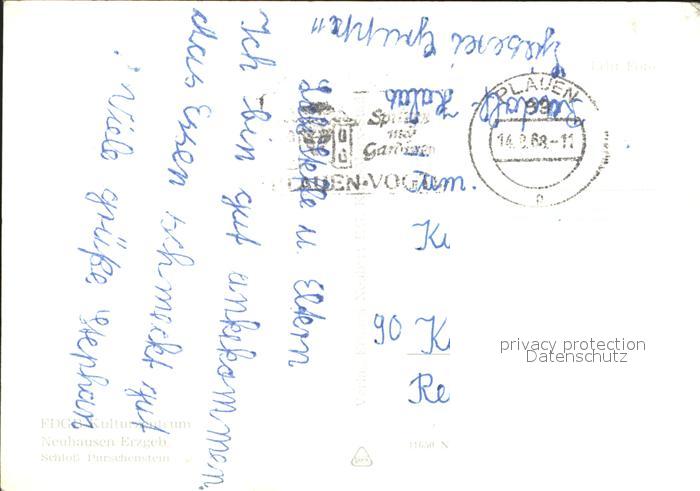 Liebe Helle u. Eltern
Ich bin gut ankekommen.
das Essen schmeckt gut
! Viele grüße Stephan
Echt Foto
PLAUEN
99
14.2.68-11
Spitzen
und
Gardinen
PLAUEN-VOGTL
Fam.
90 K
Re
privacy protection
Datenschutz
FDGB Kulturzentrum
Neuhausen Erzgeb.
Schloß Purschenstein
11650 N